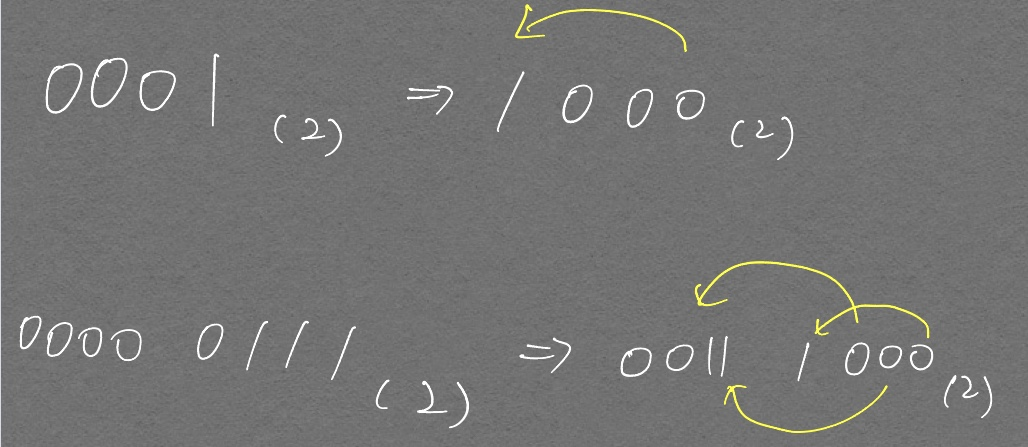 0001 (2) ⇒ 1000 (2)
0000 0111 (2) ⇒ 0011 1000 (2)